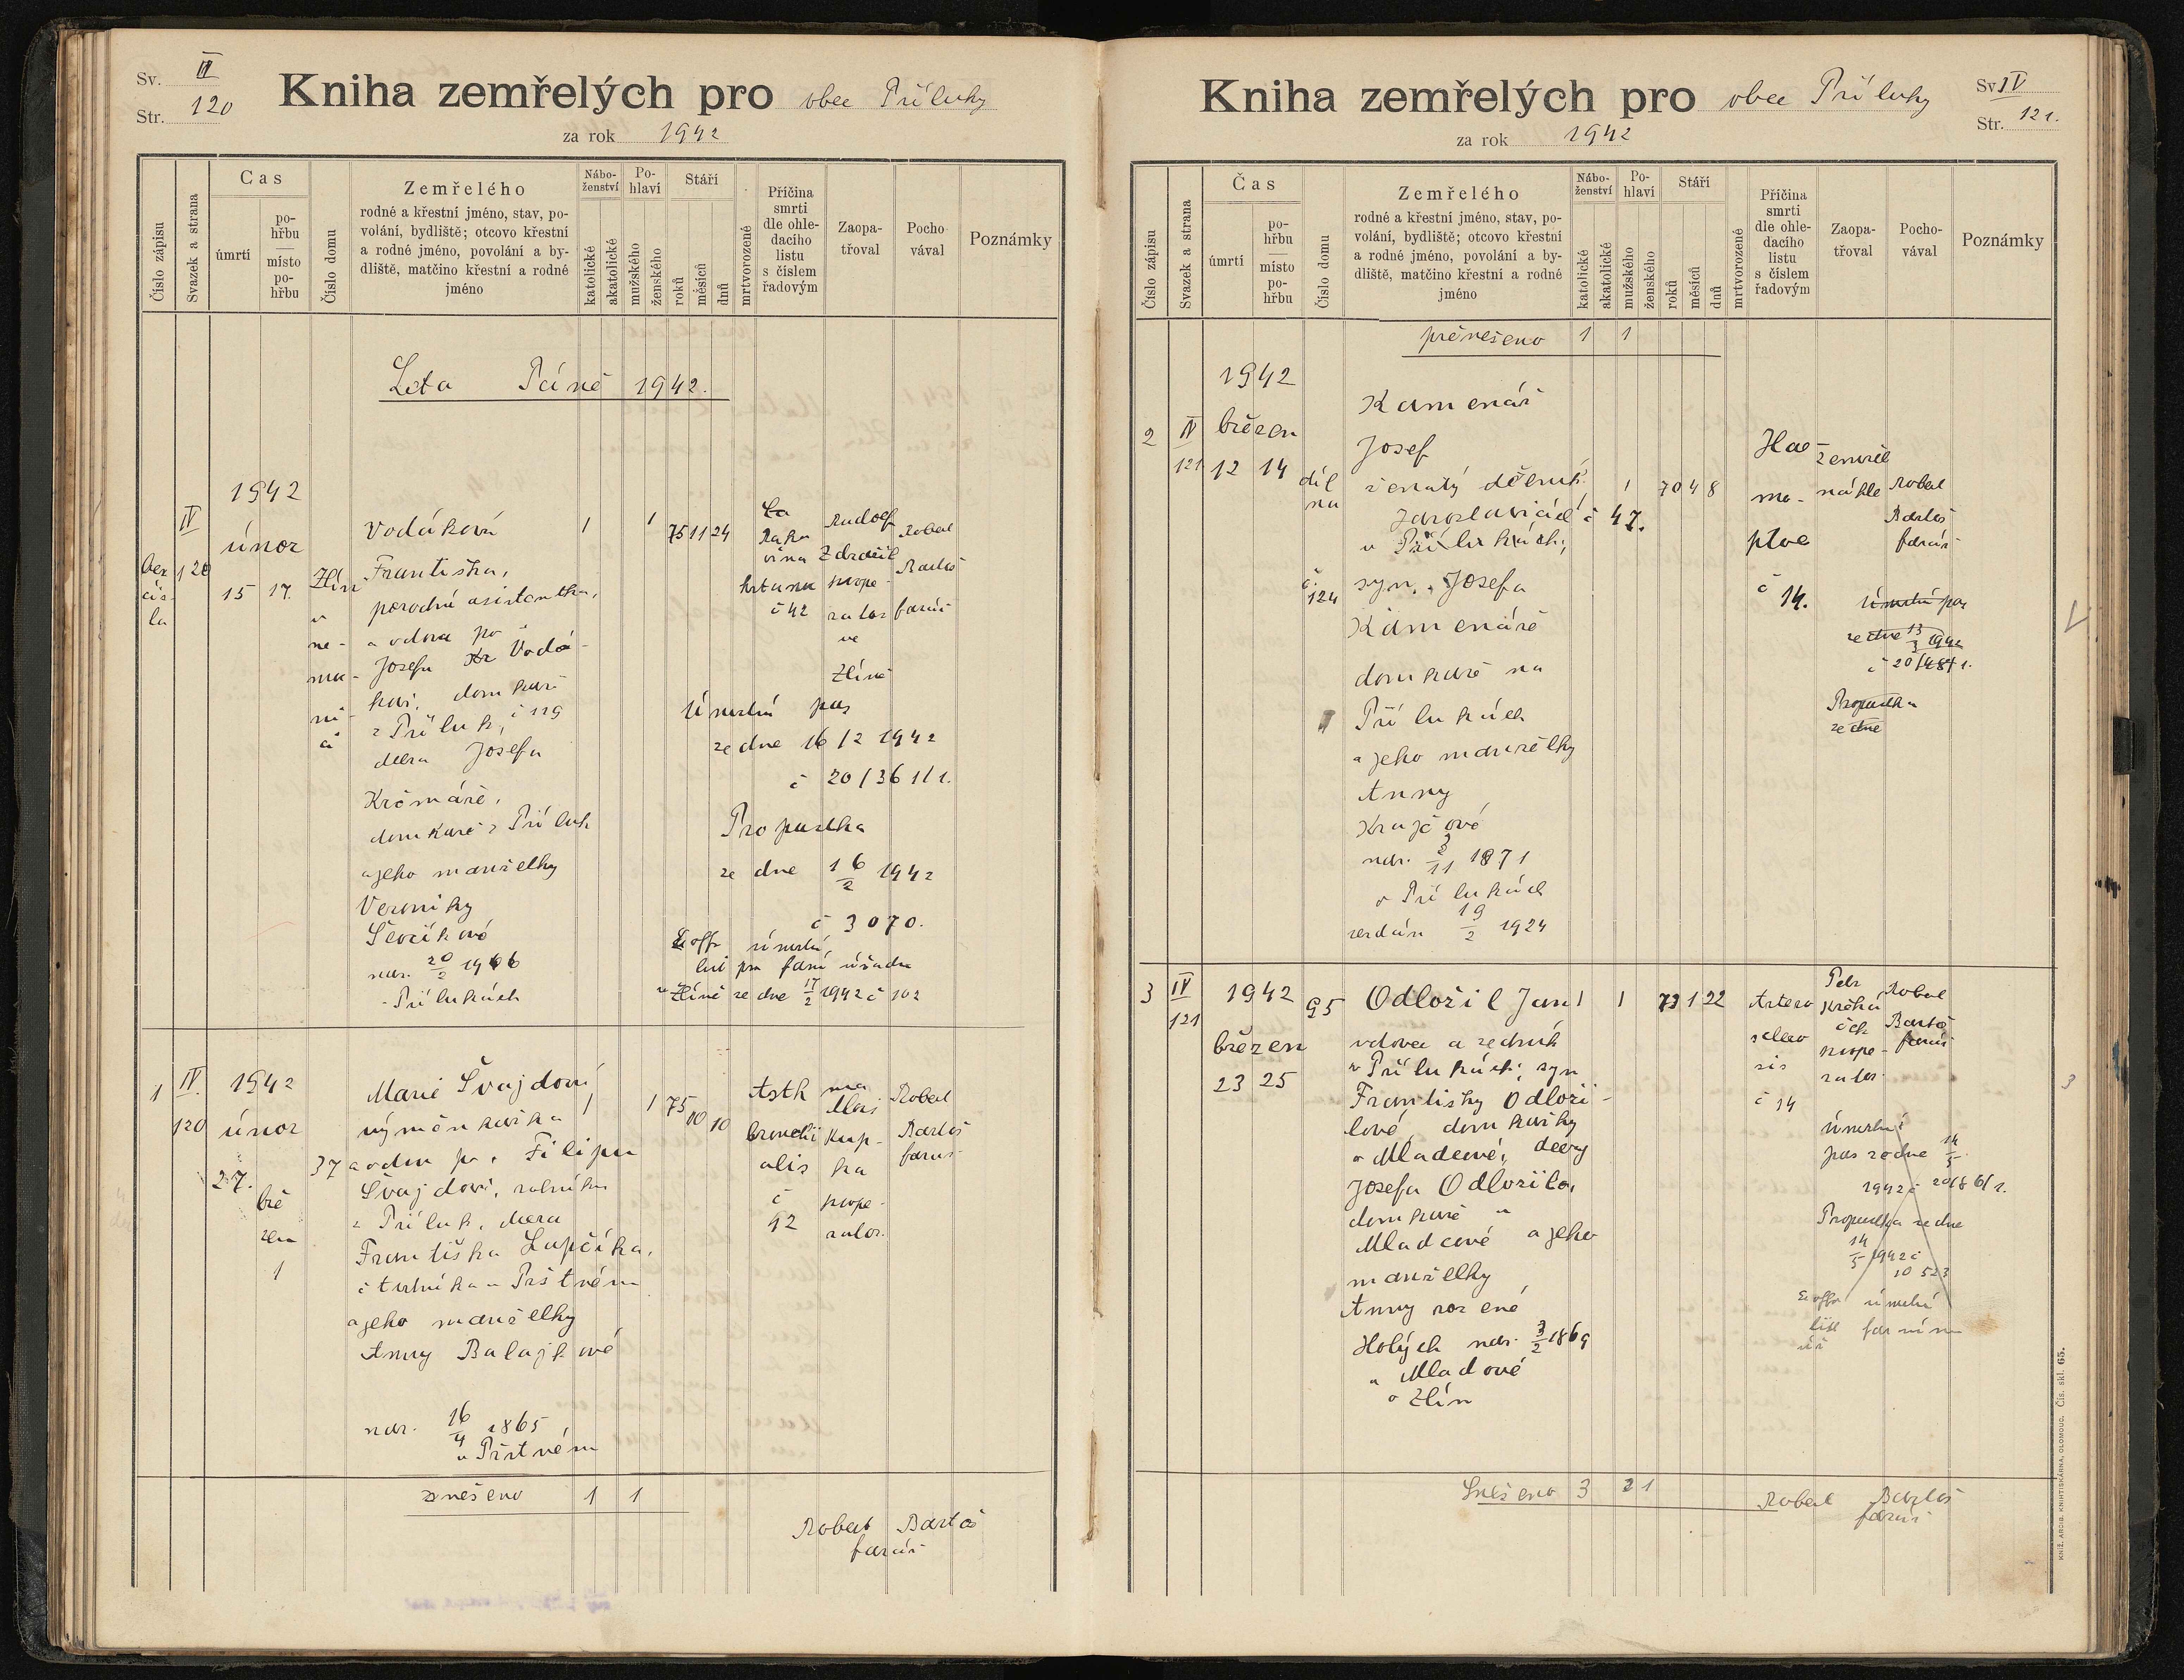 Sv. IV
Str. 120
Kniha zemřelých pro obec Příluky
za rok 1942
Číslo zápisu
Svazek a strana
Čas
úmrtí
po-
hřbu
místo
po-
hřbu
Číslo domu
Zemřelého
rodné a křestní jméno, stav, po-
volání, bydliště; otcovo křestní
a rodné jméno, povolání a by-
dliště, matčino křestní a rodné
jméno
Nábo-
ženství
katolické
akatolické
Po-
hlaví
mužského
ženského
Stáří
roků
měsíců
dnů
mrtvorozené
Příčina
smrti
dle ohle-
dacího
listu
s číslem
řadovým
Zaopa-
třoval
Pocho-
vával
Poznámky
Leta Páně 1942.
bez
čís-
la
IV
120
1942
únor
15 17.
Zlín
v
ne-
moc-
ni-
ci
Vodáková
Františka,
porodní asistentka,
a vdova po
Josefu Vodá-
kovi, domkaři
z Příluk, č 119
dcera Josefa
Krčmáře,
domkaře z Příluk
a jeho manželky
Veroniky
Ševčíkové
nar. 20/2 1966
v Přílukách
1 1 75 11 24
Rako
vina
č 42
Rudolf
Zdražil
koope-
rator
ve
Zlíně
Robert
Bartoš
farář
Úmrtní pas
ze dne 16/2 1942
č 20/3611/1.
Propustka
ze dne 16/2 1942
č 3070.
úmrtní
list pro farní úřadu
ve Zlíně ze dne 17/2 1942 č 102
1
IV.
120
1942
únor
27.
bře
zen
1
37
Marie Švajdová
výměnkářka
a vdova po Filipu
Švajdovi, rolníku
z Příluk, dcera
Františka Lapčíka,
čtvrtníka v Prštném
a jeho manželky
Anny Balajkové
nar. 16/4 1865
v Prštném
1 1 75 10 10
Asthma
bronchi
alis
č
92
Alois
Krup-
ka
koope-
rator.
Robert
Bartoš
farář
sneseno 1 1
Robert Bartoš
farář
Kniha zemřelých pro obec Příluky
za rok 1942
Sv. IV
Str. 121.
Číslo zápisu
Svazek a strana
Čas
úmrtí
po-
hřbu
místo
po-
hřbu
Číslo domu
Zemřelého
rodné a křestní jméno, stav, po-
volání, bydliště; otcovo křestní
a rodné jméno, povolání a by-
dliště, matčino křestní a rodné
jméno
Nábo-
ženství
katolické
akatolické
Po-
hlaví
mužského
ženského
Stáří
roků
měsíců
dnů
mrtvorozené
Příčina
smrti
dle ohle-
dacího
listu
s číslem
řadovým
Zaopa-
třoval
Pocho-
vával
Poznámky
přenešeno 1 1
2
IV
121
1942
březen
12 14
díl
na
č.
124
Kamenář
Josef
ženatý dělník
Jaroslavická č 47.
v Přílukách,
syn Josefa
Kamenáře
domkaře na
Přílukách
a jeho manželky
Anny
Krajčové
nar. 3/11 1871
v Přílukách
oddán 19/2 1924
1 70 4 8
Hae-
mo-
ptoe
č 14.
zemřel
náhle
Robert
Bartoš
farář
Úmrtní pas
ze dne 13/3 1942
č 20/4841.
Propustka
ze dne
3
IV
121
1942
březen
23 25
95
Odložil Jan
vdovec a zedník
v Přílukách, syn
Františky Odloži-
lové, domkářky
v Mladcové, dcery
Josefa Odložila,
domkaře v
Mladcové a jeho
manželky
Anny rozené
Holých nar. 3/2 1869
v Mladcové
o Zlín
1 1 73 1 22
Arterio
sclero
sis
č 14
Petr
koope-
rator
Robert
Bartoš
farář
Úmrtní
pas ze dne 14/5
1942 č 20/861/1.
Propustka ze dne
14/5 1942 č
10 523
úmrtní
list farním
úř
Sneseno 3 2 1
Robert Bartoš
farář
KNIŽ. ARCIB. KNIHTISKÁRNA, OLOMOUC. Čís. skl. 65.